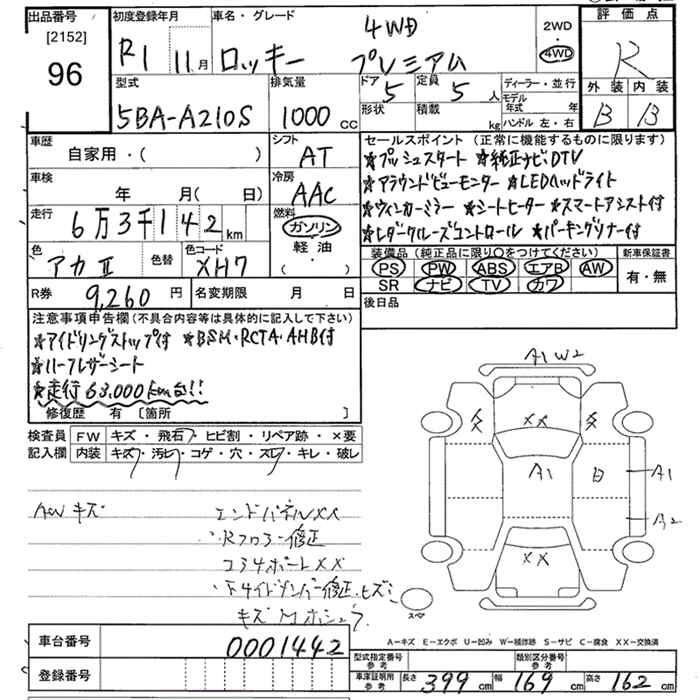 出品番号 初度登録年月 車名・グレード 4WD 2WD 評価点
[2152] R1 11月 ロッキー プレミアム 4WD R
96
型式 排気量 ドア 定員 ディーラー・並行 外装 内装
5BA-A210S 1000 CC 5 5 人 モデル年式 年 B B
形状 積載 kg ハンドル 左・右
車歴 シフト セールスポイント (正常に機能するものに限ります)
自家用・( ) AT ★プッシュスタート ★純正ナビDTV
車検 冷房 ★アラウンドビューモニター ★LEDヘッドライト
年 月( 日) AAC ★ウィンカーミラー ★シートヒーター ★スマートアシスト付
走行 燃料 ★レダークルーズコントロール ★パーキングソナー付
6万3千142km ガソリン
色 色替 色コード 軽油 装備品 (純正品に限り○をつけてください) 新車保証書
アカⅡ XH7 ・( ) PS PW ABS エアB AW 有・無
SR ナビ TV カワ
R券 9,260円 名変期限 月 日 後日品
注意事項申告欄 (不具合内容等は具体的に記入して下さい)
★アイドリングストップ付 ★BSM・RCTA・AHB付
★ハーフレザーシート
★走行63,000km台!!
修復歴 有 [箇所 ]
検査員 FW キズ・飛石・ヒビ割・リペア跡・×要
記入欄 内装 キズ・汚レ・コゲ・穴・スレ・キレ・破レ
A1 W2
××
A1
A1
A2
××
スペア
AWキズ エンドパネル××
Rフロアー修正
コアサポート××
キズ
A-キズ E-エクボ U-凹み W-補修跡 S-サビ C-腐食 XX-交換済
車台番号 0001442
登録番号
型式指定番号 参考 類別区分番号 参考
車庫証明用 参考 長さ 399cm 幅 169cm 高さ 162cm